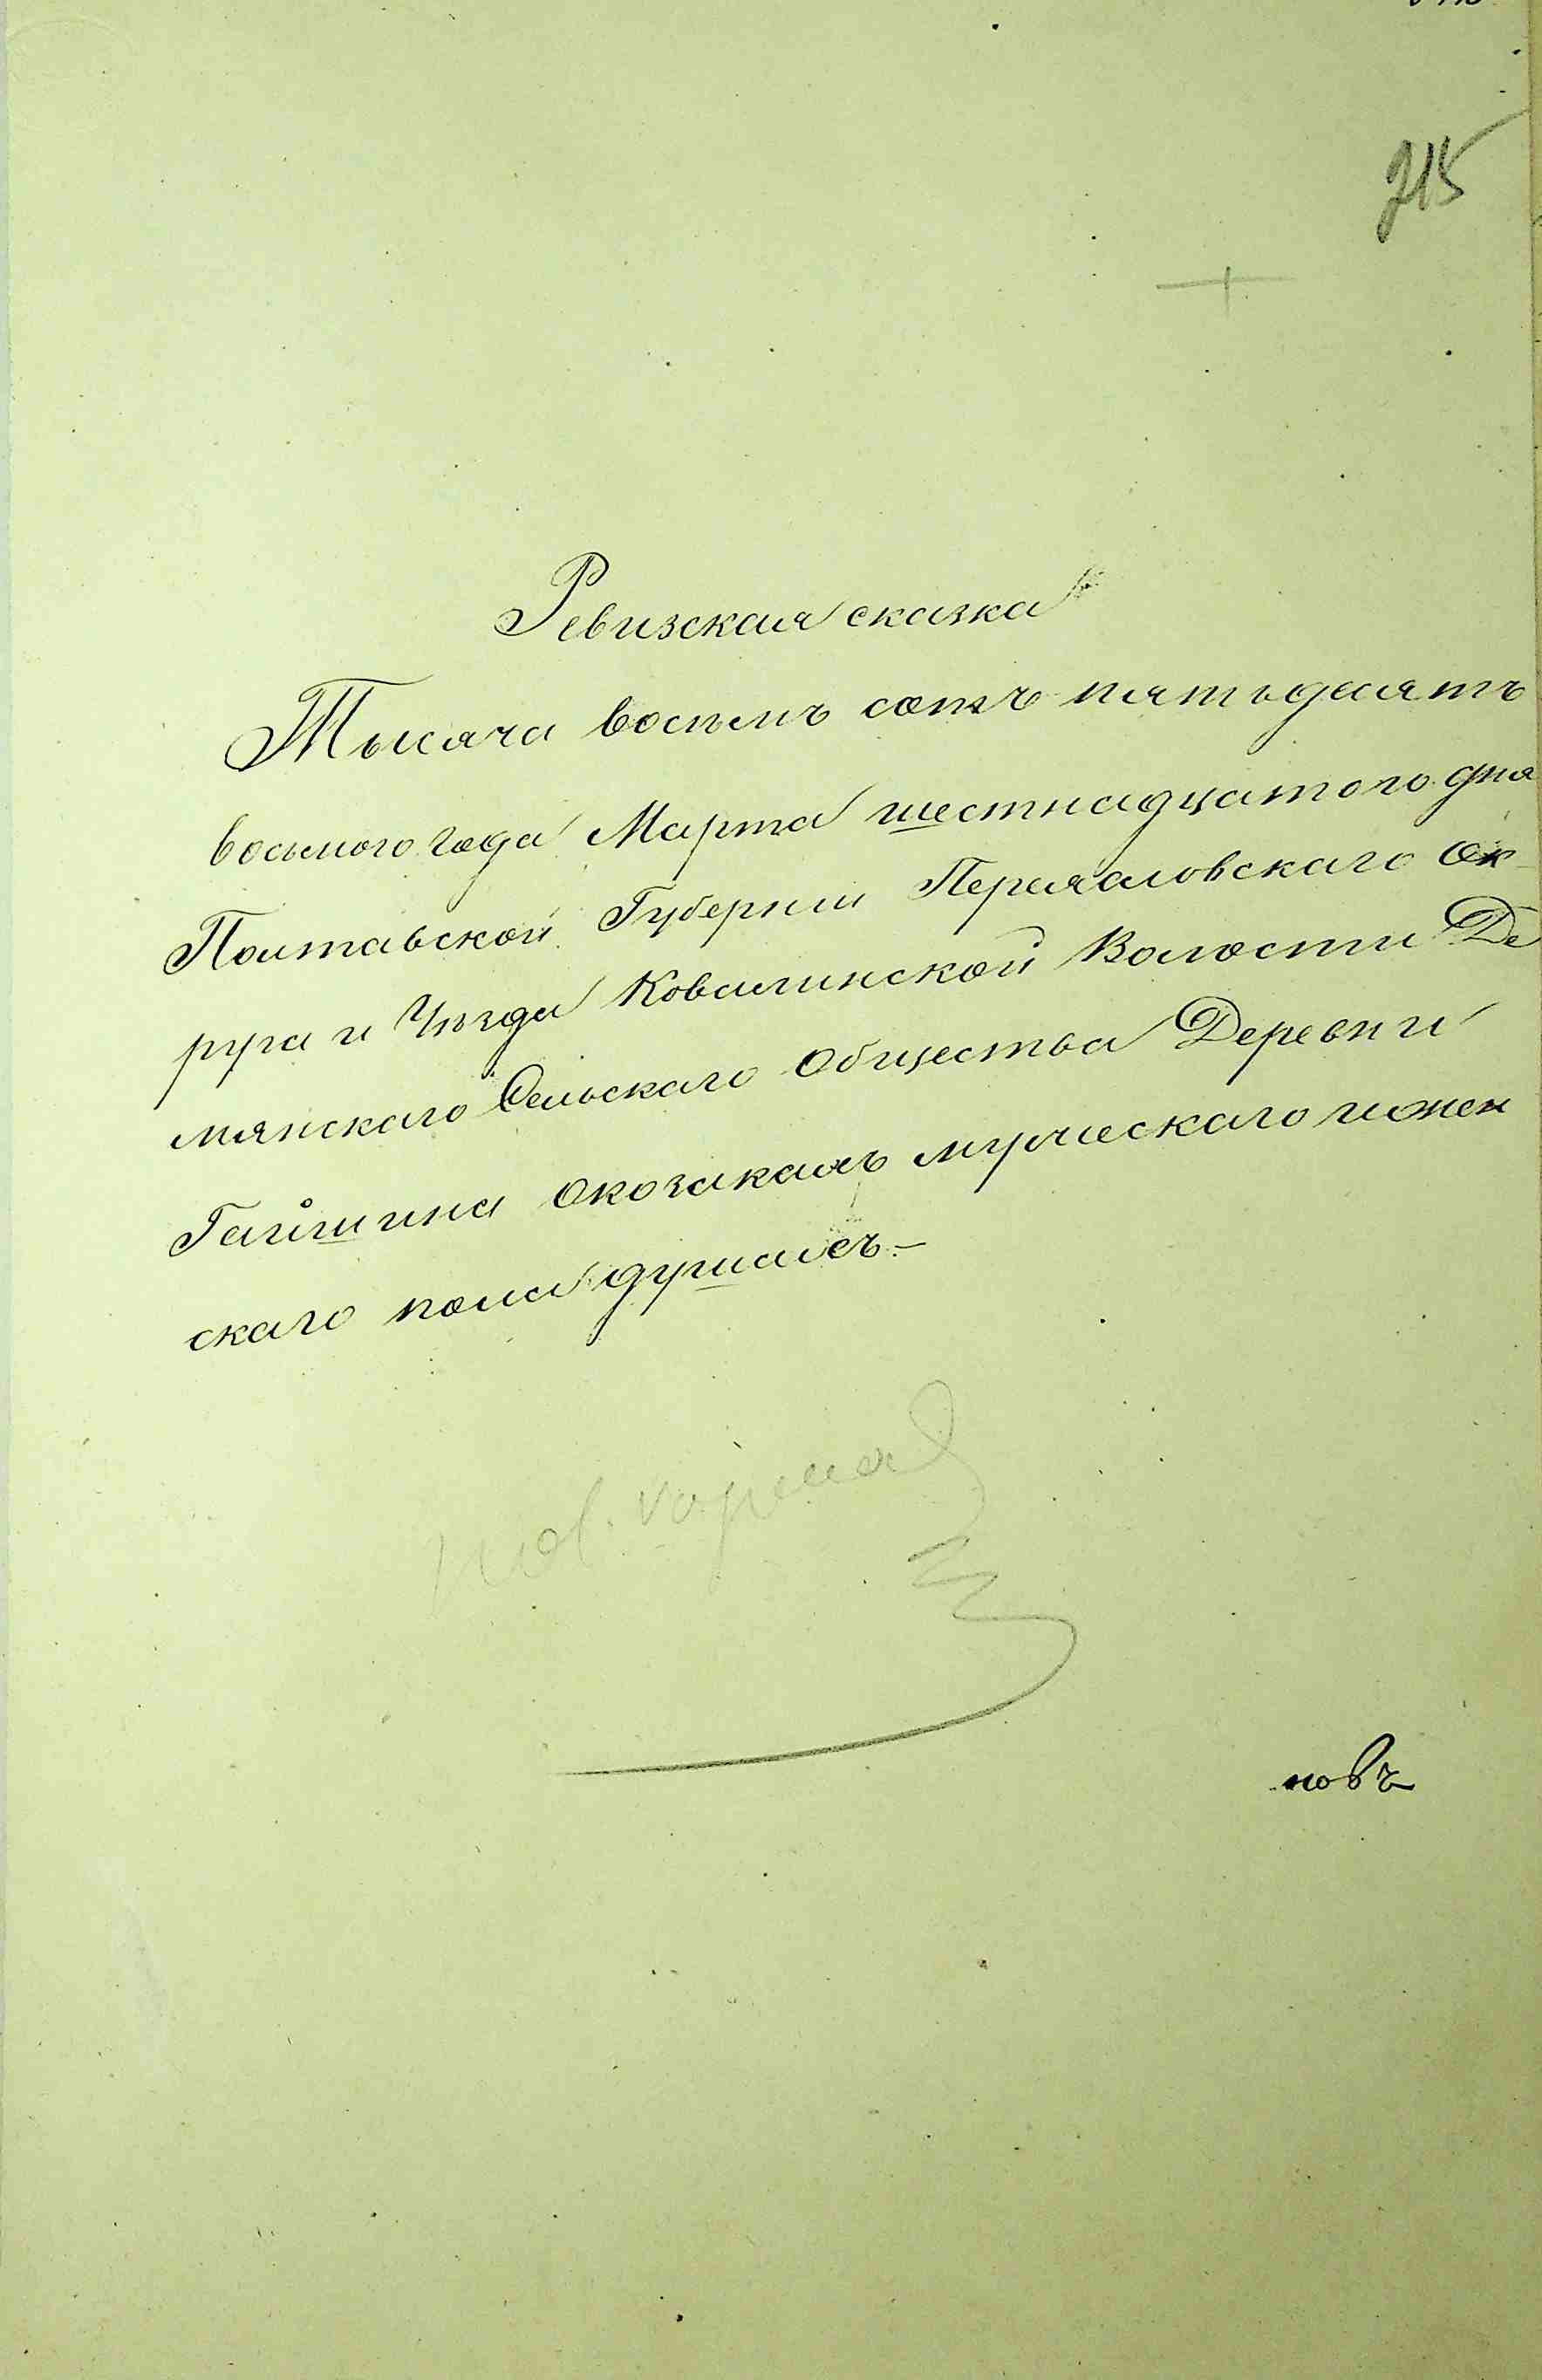 215
Ревизская сказка
Тысяча восемь сотъ пятьдесятъ
восьмого года Марта шестнадцатого дня
Полтавской Губернии Переяаловскаго Ок-
руга и Уѣзда Ковалинской Волости Де
мянскаго Сельскаго Общества Деревни
Гайшина окозакахъ мужескаго ижен
скаго пола душахъ.—
новъ